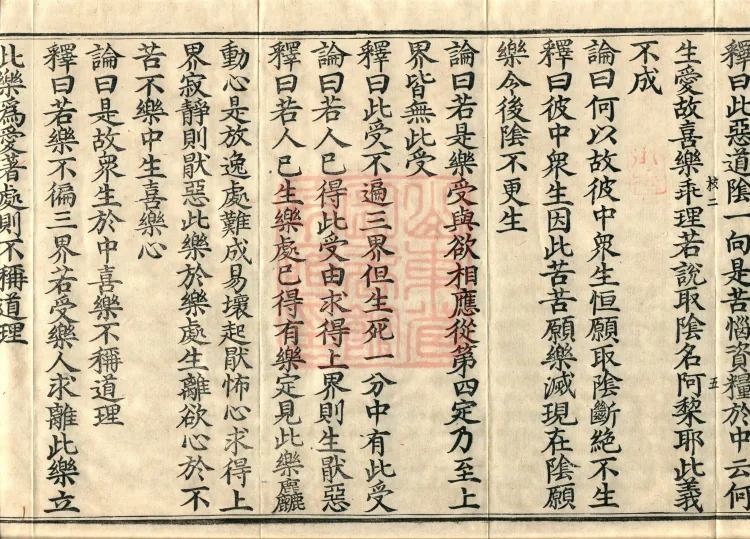 釋曰此惡道陰一向是苦惱資糧於中云何
生愛故喜樂乖理若說取陰名阿棃耶此義
不成
論曰何以故彼中衆生恒願取陰斷絕不生
釋曰彼中衆生因此苦苦願樂滅現在陰願
樂今後陰不更生
論曰若是樂受與欲相應從第四定乃至上
界皆無此受
釋曰此受不遍三界但生死一分中有此受
論曰若人已得此受由求得上界則生猒惡
釋曰若人已生樂處已得有樂定見此樂麤
動心是放逸處難成易壞起猒怖心求得上
界寂靜則猒惡此樂於樂處生離欲心於不
苦不樂中生喜樂心
論曰是故衆生於中喜樂不稱道理
釋曰若樂不偏三界若受樂人求離此樂立
此樂爲愛著處則不稱道理
核二
五